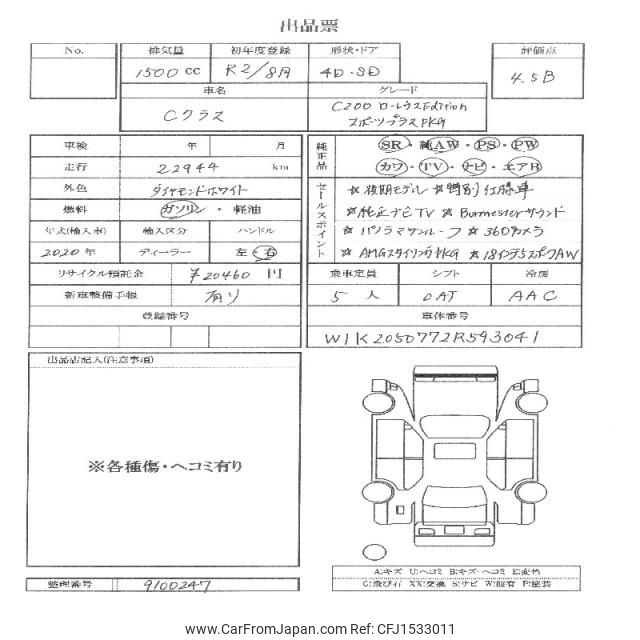 出品票
No. 排気量 初年度登録 形状・ドア 評価点
1500cc R2/8月 4D・SD 4.5B
車名 グレード
Cクラス C200 ローレウスEdition
スポーツプラスPKG
車検 年 月
走行 22944 km
外色 ダイヤモンドホワイト
燃料 ガソリン・軽油
年式(輸入車) 輸入区分 ハンドル
2020年 ディーラー 左・右
リサイクル預託金 ¥20460 円
新車整備手帳 有り
登録番号
純正品 SR・純AW・PS・PW
カワ・TV・ナビ・エアB
セールスポイント
☆後期モデル ☆特別仕様車
☆純正ナビTV ☆Burmesterサウンド
☆パノラマサンルーフ ☆360°カメラ
☆AMGスタイリングPKG ☆18インチ5スポークAW
乗車定員 シフト 冷房
5人 OAT AAC
車体番号
W1K2050772R593041
出品店記入(注意事項)
※各種傷・ヘコミ有り
整理番号 9100247
A:キズ U:ヘコミ B:キズ・ヘコミ E:変色
C:飛び石 XX:交換 S:サビ W:波有 P:塗装
www.CarFromJapan.com - CFJ1533011